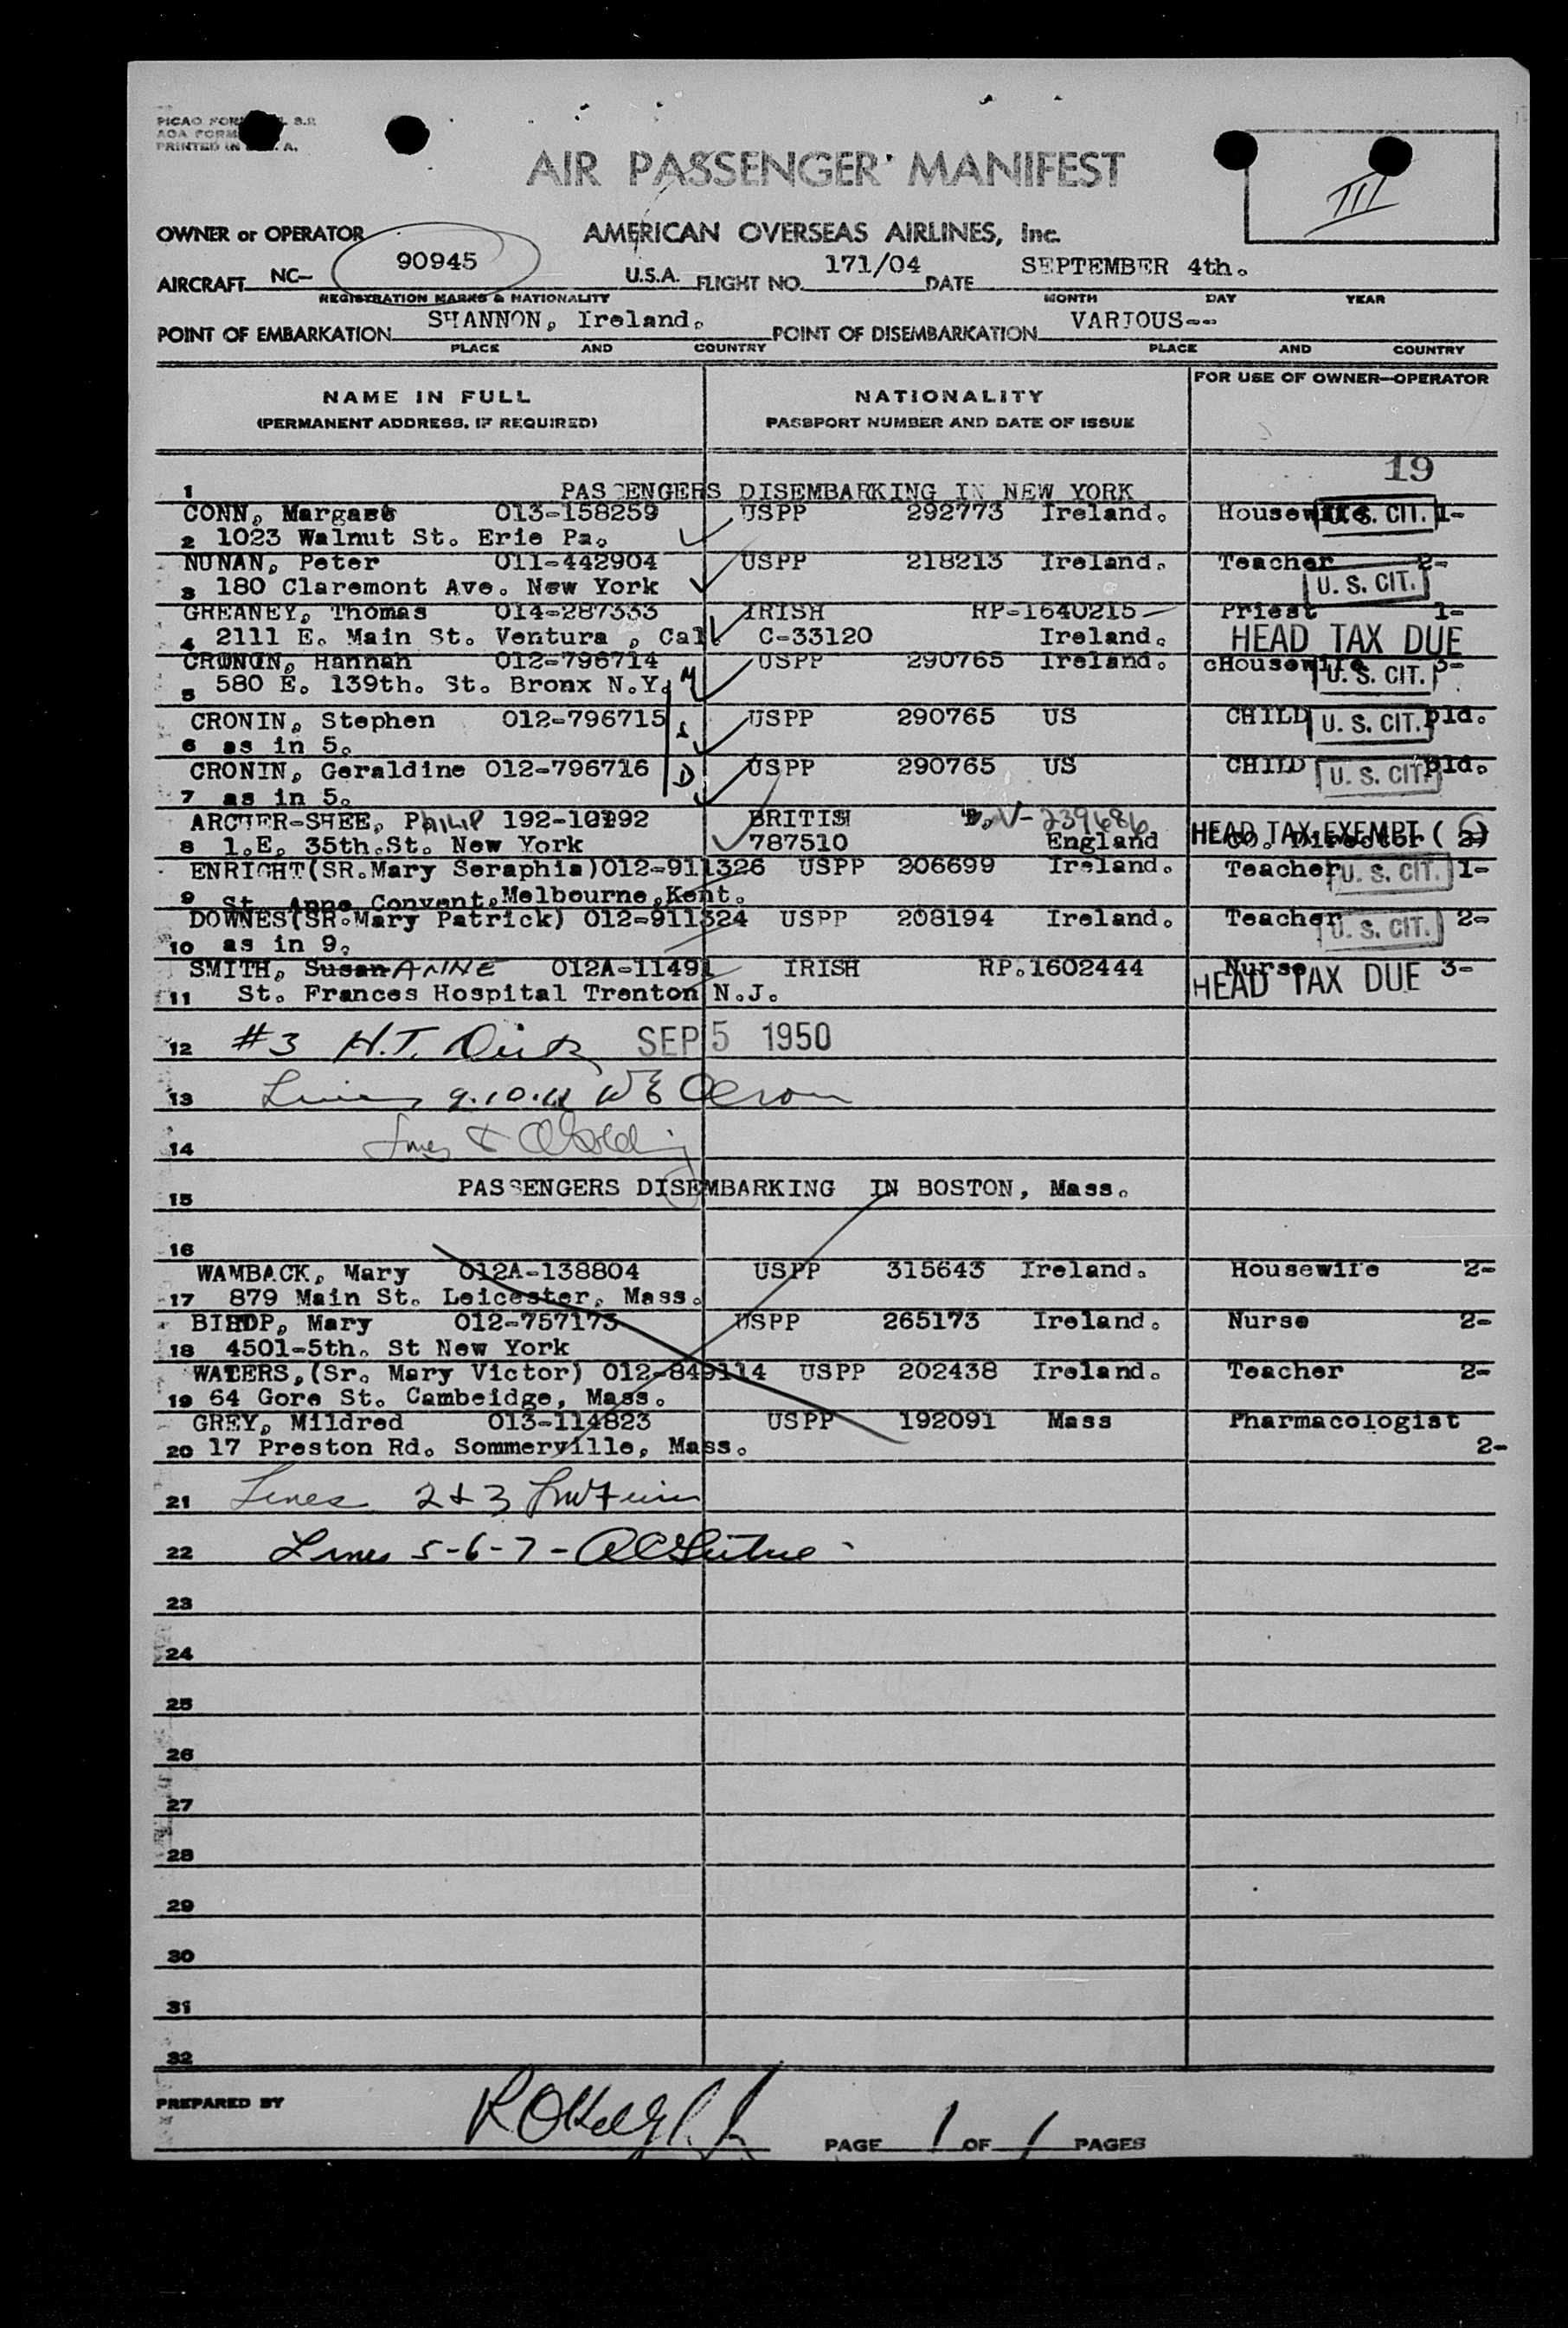 PRINTED IN
AIR PASSENGER MANIFEST
OWNER or OPERATOR AMERICAN OVERSEAS AIRLINES, Inc.
AIRCRAFT NC- 90945 U.S.A. FLIGHT NO. 171/04 DATE SEPTEMBER 4th.
REGISTRATION MARKS & NATIONALITY MONTH DAY YEAR
POINT OF EMBARKATION SHANNON, Ireland. POINT OF DISEMBARKATION VARIOUS--
PLACE AND COUNTRY PLACE AND COUNTRY
FOR USE OF OWNER-OPERATOR
NAME IN FULL NATIONALITY
(PERMANENT ADDRESS, IF REQUIRED) PASSPORT NUMBER AND DATE OF ISSUE
19
1 PASSENGERS DISEMBARKING IN NEW YORK
CONN, 013-158259 USPP 292773 Ireland. Housewife U. S. CIT. 1-
2 1023 Walnut St. Erie Pa.
NUNAN, Peter 011-442904 USPP 218213 Ireland. Teacher 2-
3 180 Claremont Ave. New York U. S. CIT.
GREANEY, Thomas 014-287333 IRISH RP-1640215 Priest 1-
4 2111 E. Main St. Ventura , Cal C-33120 Ireland. HEAD TAX DUE
CRONIN, Hannah 012-796714 USPP 290765 Ireland. cHousewife 3-
5 580 E. 139th. St. Bronx N.Y. M U. S. CIT.
CRONIN, Stephen 012-796715 USPP 290765 US CHILD U. S. CIT. pld.
6 as in 5. S
CRONIN, Geraldine 012-796716 D USPP 290765 US CHILD U. S. CIT. pld.
7 as in 5.
ARCHER-SHEE, PhILIP BRITISH V-239686 HEAD TAX EXEMPT (
8 1.E. 35th.St. New York 787510 England Co. Director 2)
ENRIGHT(SR.Mary Seraphia)012-911326 USPP 206699 Ireland. Teacher U. S. CIT. 1-
9 St. Anne Convent,Melbourne,Kent.
DOWNES(SR.Mary Patrick) 012-911324 USPP 208194 Ireland. Teacher U. S. CIT. 2-
10 as in 9.
SMITH, Susan ANNE 012A-11491 IRISH RP.1602444 Nurse 3-
11 St. Frances Hospital Trenton N.J. HEAD TAX DUE
12 #3 H.T. SEP 5 1950
13 9.10.11
14
15 PASSENGERS DISEMBARKING IN BOSTON, Mass.
16
WAMBACK, Mary 012A-138804 USPP 315643 Ireland. Housewife 2-
17 879 Main St. Leicester, Mass.
BISHOP, Mary 012-757173 USPP 265173 Ireland. Nurse 2-
18 4501-5th. St New York
WATERS,(Sr. Mary Victor) 012-849114 USPP 202438 Ireland. Teacher 2-
19 64 Gore St. Cambeidge, Mass.
GREY, Mildred 013-114823 USPP 192091 Mass Pharmacologist
20 17 Preston Rd. Sommerville, Mass. 2-
21 Lines 2 & 3
22 Lines 5-6-7-
23
24
25
26
27
28
29
30
31
32
PREPARED BY
PAGE 1 OF 1 PAGES